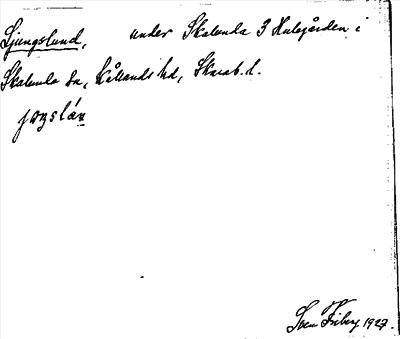 Ljungslund, under Skalunda 3 Hulegården i
Skalunda sn, Kållands hd, Skarab. l.
joŋslán
Sven Friberg 1927.